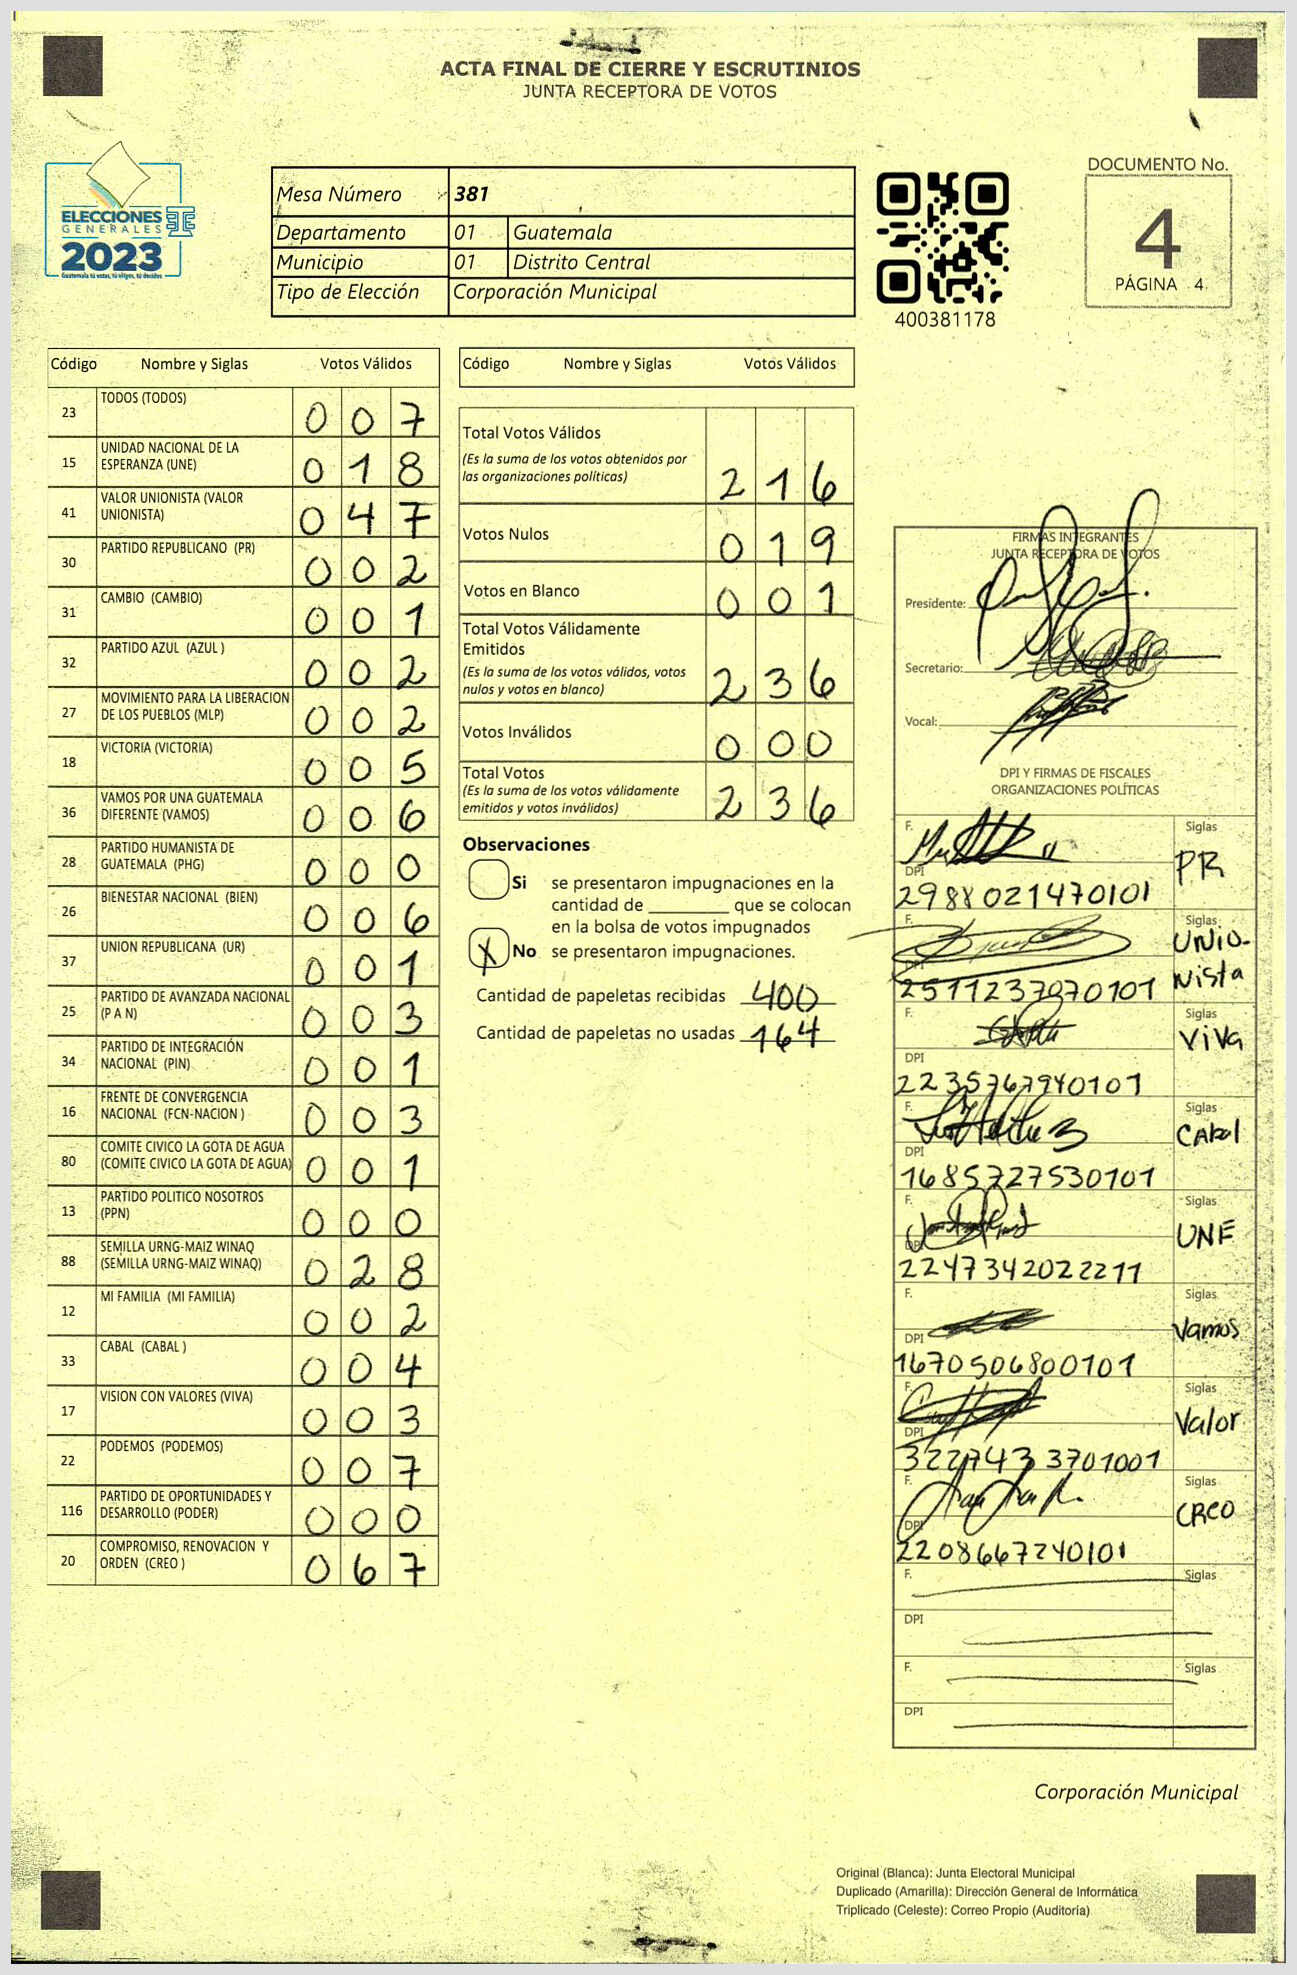 ACTA FINAL DE CIERRE Y ESCRUTINIOS
JUNTA RECEPTORA DE VOTOS
ELECCIONES
GENERALES
2023
Guatemala tú votas, tú eliges, tú decides
Mesa Número 381
Departamento 01 Guatemala
Municipio 01 Distrito Central
Tipo de Elección Corporación Municipal
400381178
DOCUMENTO No.
4
PÁGINA 4
Código Nombre y Siglas Votos Válidos
23 TODOS (TODOS) 0 0 7
15 UNIDAD NACIONAL DE LA
ESPERANZA (UNE) 0 1 8
41 VALOR UNIONISTA (VALOR
UNIONISTA) 0 4 7
30 PARTIDO REPUBLICANO (PR) 0 0 2
31 CAMBIO (CAMBIO) 0 0 1
32 PARTIDO AZUL (AZUL ) 0 0 2
27 MOVIMIENTO PARA LA LIBERACION
DE LOS PUEBLOS (MLP) 0 0 2
18 VICTORIA (VICTORIA) 0 0 5
36 VAMOS POR UNA GUATEMALA
DIFERENTE (VAMOS) 0 0 6
28 PARTIDO HUMANISTA DE
GUATEMALA (PHG) 0 0 0
26 BIENESTAR NACIONAL (BIEN) 0 0 6
37 UNION REPUBLICANA (UR) 0 0 1
25 PARTIDO DE AVANZADA NACIONAL
(P A N) 0 0 3
34 PARTIDO DE INTEGRACIÓN
NACIONAL (PIN) 0 0 1
16 FRENTE DE CONVERGENCIA
NACIONAL (FCN-NACION ) 0 0 3
80 COMITE CIVICO LA GOTA DE AGUA
(COMITE CIVICO LA GOTA DE AGUA) 0 0 1
13 PARTIDO POLITICO NOSOTROS
(PPN) 0 0 0
88 SEMILLA URNG-MAIZ WINAQ
(SEMILLA URNG-MAIZ WINAQ) 0 2 8
12 MI FAMILIA (MI FAMILIA) 0 0 2
33 CABAL (CABAL ) 0 0 4
17 VISION CON VALORES (VIVA) 0 0 3
22 PODEMOS (PODEMOS) 0 0 7
116 PARTIDO DE OPORTUNIDADES Y
DESARROLLO (PODER) 0 0 0
20 COMPROMISO, RENOVACION Y
ORDEN (CREO ) 0 6 7
Código Nombre y Siglas Votos Válidos
Total Votos Válidos
(Es la suma de los votos obtenidos por
las organizaciones políticas) 2 1 6
Votos Nulos 0 1 9
Votos en Blanco 0 0 1
Total Votos Válidamente
Emitidos
(Es la suma de los votos válidos, votos
nulos y votos en blanco) 2 3 6
Votos Inválidos 0 0 0
Total Votos
(Es la suma de los votos válidamente
emitidos y votos inválidos) 2 3 6
Observaciones
Si se presentaron impugnaciones en la
cantidad de ________ que se colocan
en la bolsa de votos impugnados
X No se presentaron impugnaciones.
Cantidad de papeletas recibidas 400
Cantidad de papeletas no usadas 164
FIRMAS INTEGRANTES
JUNTA RECEPTORA DE VOTOS
Presidente:
Secretario:
Vocal:
DPI Y FIRMAS DE FISCALES
ORGANIZACIONES POLÍTICAS
F. Siglas
PR
DPI
2988021470101
F. Siglas
UNIO-
Nista
DPI
2511237970101
F. Siglas
VIVA
DPI
2235767940101
F. Siglas
CAbal
DPI
1685727530101
F. Siglas
UNE
DPI
2247342022211
F. Siglas
Vamos
DPI
1670506800101
F. Siglas
Valor
DPI
F. Siglas
CREO
DPI
2208667240101
F. Siglas
DPI
F. Siglas
DPI
Corporación Municipal
Original (Blanca): Junta Electoral Municipal
Duplicado (Amarilla): Dirección General de Informática
Triplicado (Celeste): Correo Propio (Auditoría)